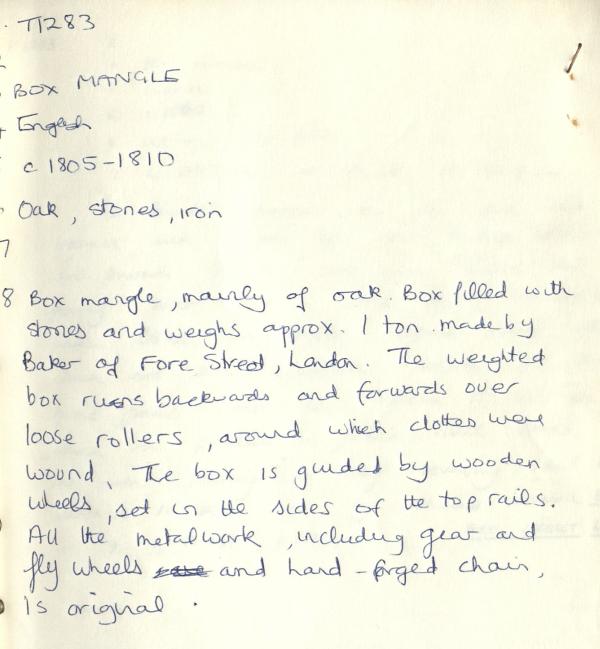 TI283
BOX MANGLE
English
c 1805-1810
Oak, stones, iron
7
8 Box mangle, mainly of oak. Box filled with
stones and weighs approx. 1 ton. made by
Baker of Fore Street, London. The weighted
box runs backwards and forwards over
loose rollers, around which clothes were
wound. The box is guided by wooden
wheels, set in the sides of the top rails.
All the metalwork, including gear and
fly wheels and hand-forged chain,
is original.